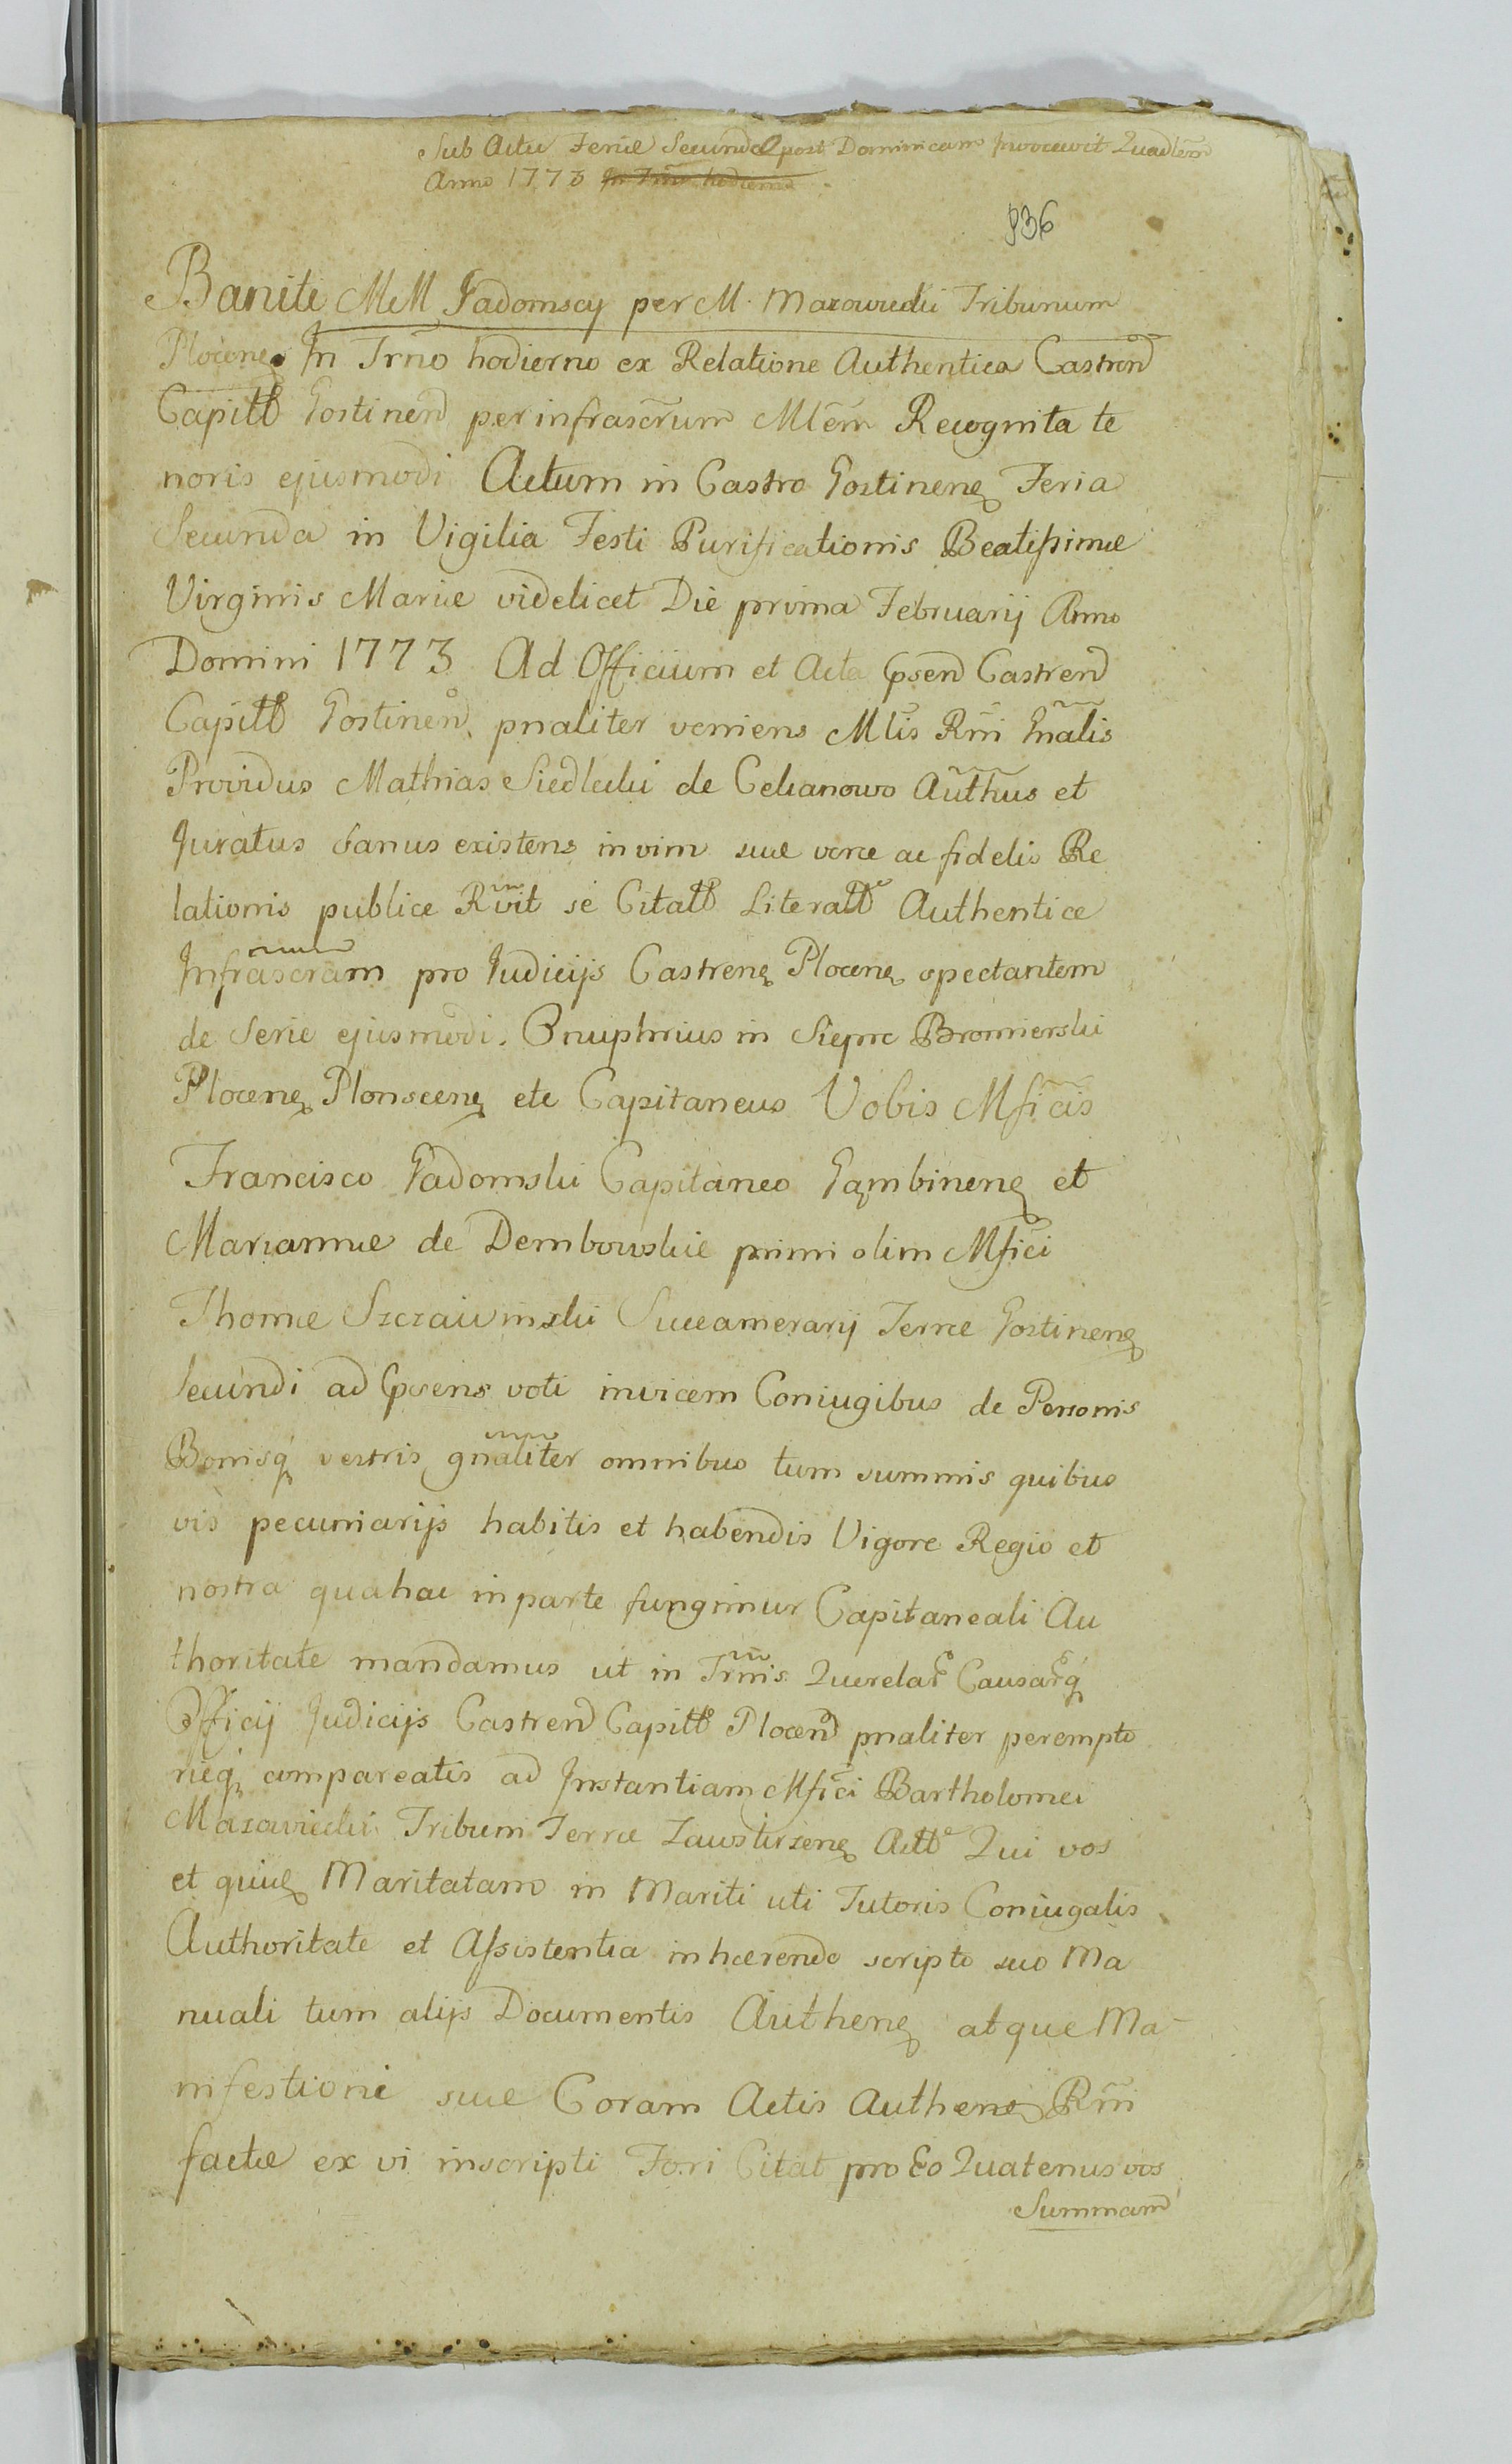 Sub Actu Feriæ Secundæ post Dominicam Invocavit Quadlem
Anno 1773 In Trno hodierno
936
Baniti MM Gadomscy per M. Mazowiecki Tribunum
Plocen. In Trno hodierno ex Relatione Authentica Castren
Capitl Gostinen per infrascrum Mlem Recognita te
noris ejusmodi Actum in Castro Gostinen Feria
Secunda in Vigilia Festi Purificationis Beatissimæ
Virginis Mariæ videlicet Die prima Februarij Anno
Domini 1773 Ad Officium et Acta psen Castren
Capitl Gostinen. pnaliter veniens Mlis Rni Gnalis
Providus Mathias Siedlecki de Cekanowo Authus et
Juratus sanus existens in vim suæ veræ ac fidelis Re
lationis publice Rvit se Citatt Literatt Authentice
Infrascram pro Judicijs Castren Plocen spectantem
de serie ejusmodi. Onuphrius in Sieprc Bromierski
Plocen Plonscen etc Capitaneus Vobis Mficis
Francisco Gadomski Capitaneo Gąmbinen et
Mariannæ de Dembowskie primi olim Mfici
Thomæ Szczawinski Succamerarij Terræ Gostinen
Secundi ad psens voti invicem Coniugibus de Personis
Bonisq vestris gnaliter omnibus tum summis quibus
vis pecuniarijs habitis et habendis Vigore Regio et
nostra qua hac in parte fungimur Capitaneali Au
thoritate mandamus ut in Trnis Querelar Causarq
Officij Judicijs Castren Capitl Plocen pnaliter perempto
rieq compareatis ad Instantiam Mfici Bartholomei
Mazowiecki Tribuni Terræ Zawskrzen Actt Qui vos
et quid Maritatam in Mariti uti Tutoris Coniugalis
Authoritate et Assistentia inhærendo scripto suo Ma
nuali tum alijs Documentis Authen atque Ma-
nifestioni suæ Coram Actis Authen Rni
factæ ex vi inscripti Fori Citat pro Eo Quatenus vos
Summam